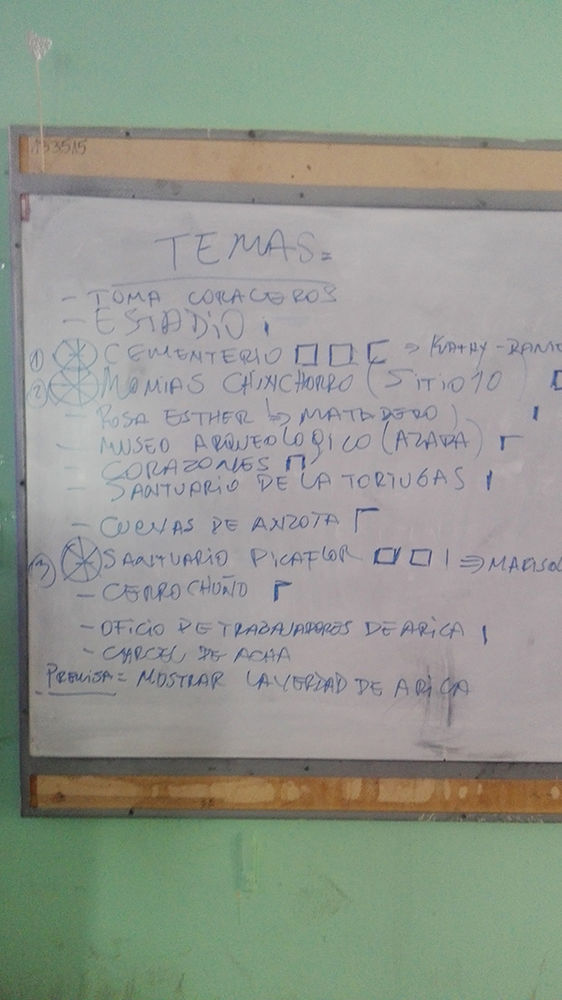 133515
TEMAS=
- TOMA CORACEROS
- ESTADIO
1) CEMENTERIO ⇒ KATHY-
2) MOMIAS CHINCHORRO (SITIO 10)
- ROSA ESTHER ↳ MATADERO)
- MUSEO ARQUEOLOGICO (AZAPA)
- CORAZONES
- SANTUARIO DE LA TORTUGAS
- CUEVAS DE ANZOTA
3) SANTUARIO PICAFLOR ⇒ MARISOL
- CERRO CHUÑO
- OFICIO DE TRABAJADORES DE ARICA
- CARCEL DE ACHA
PREMISA = MOSTRAR LA VERDAD DE ARICA